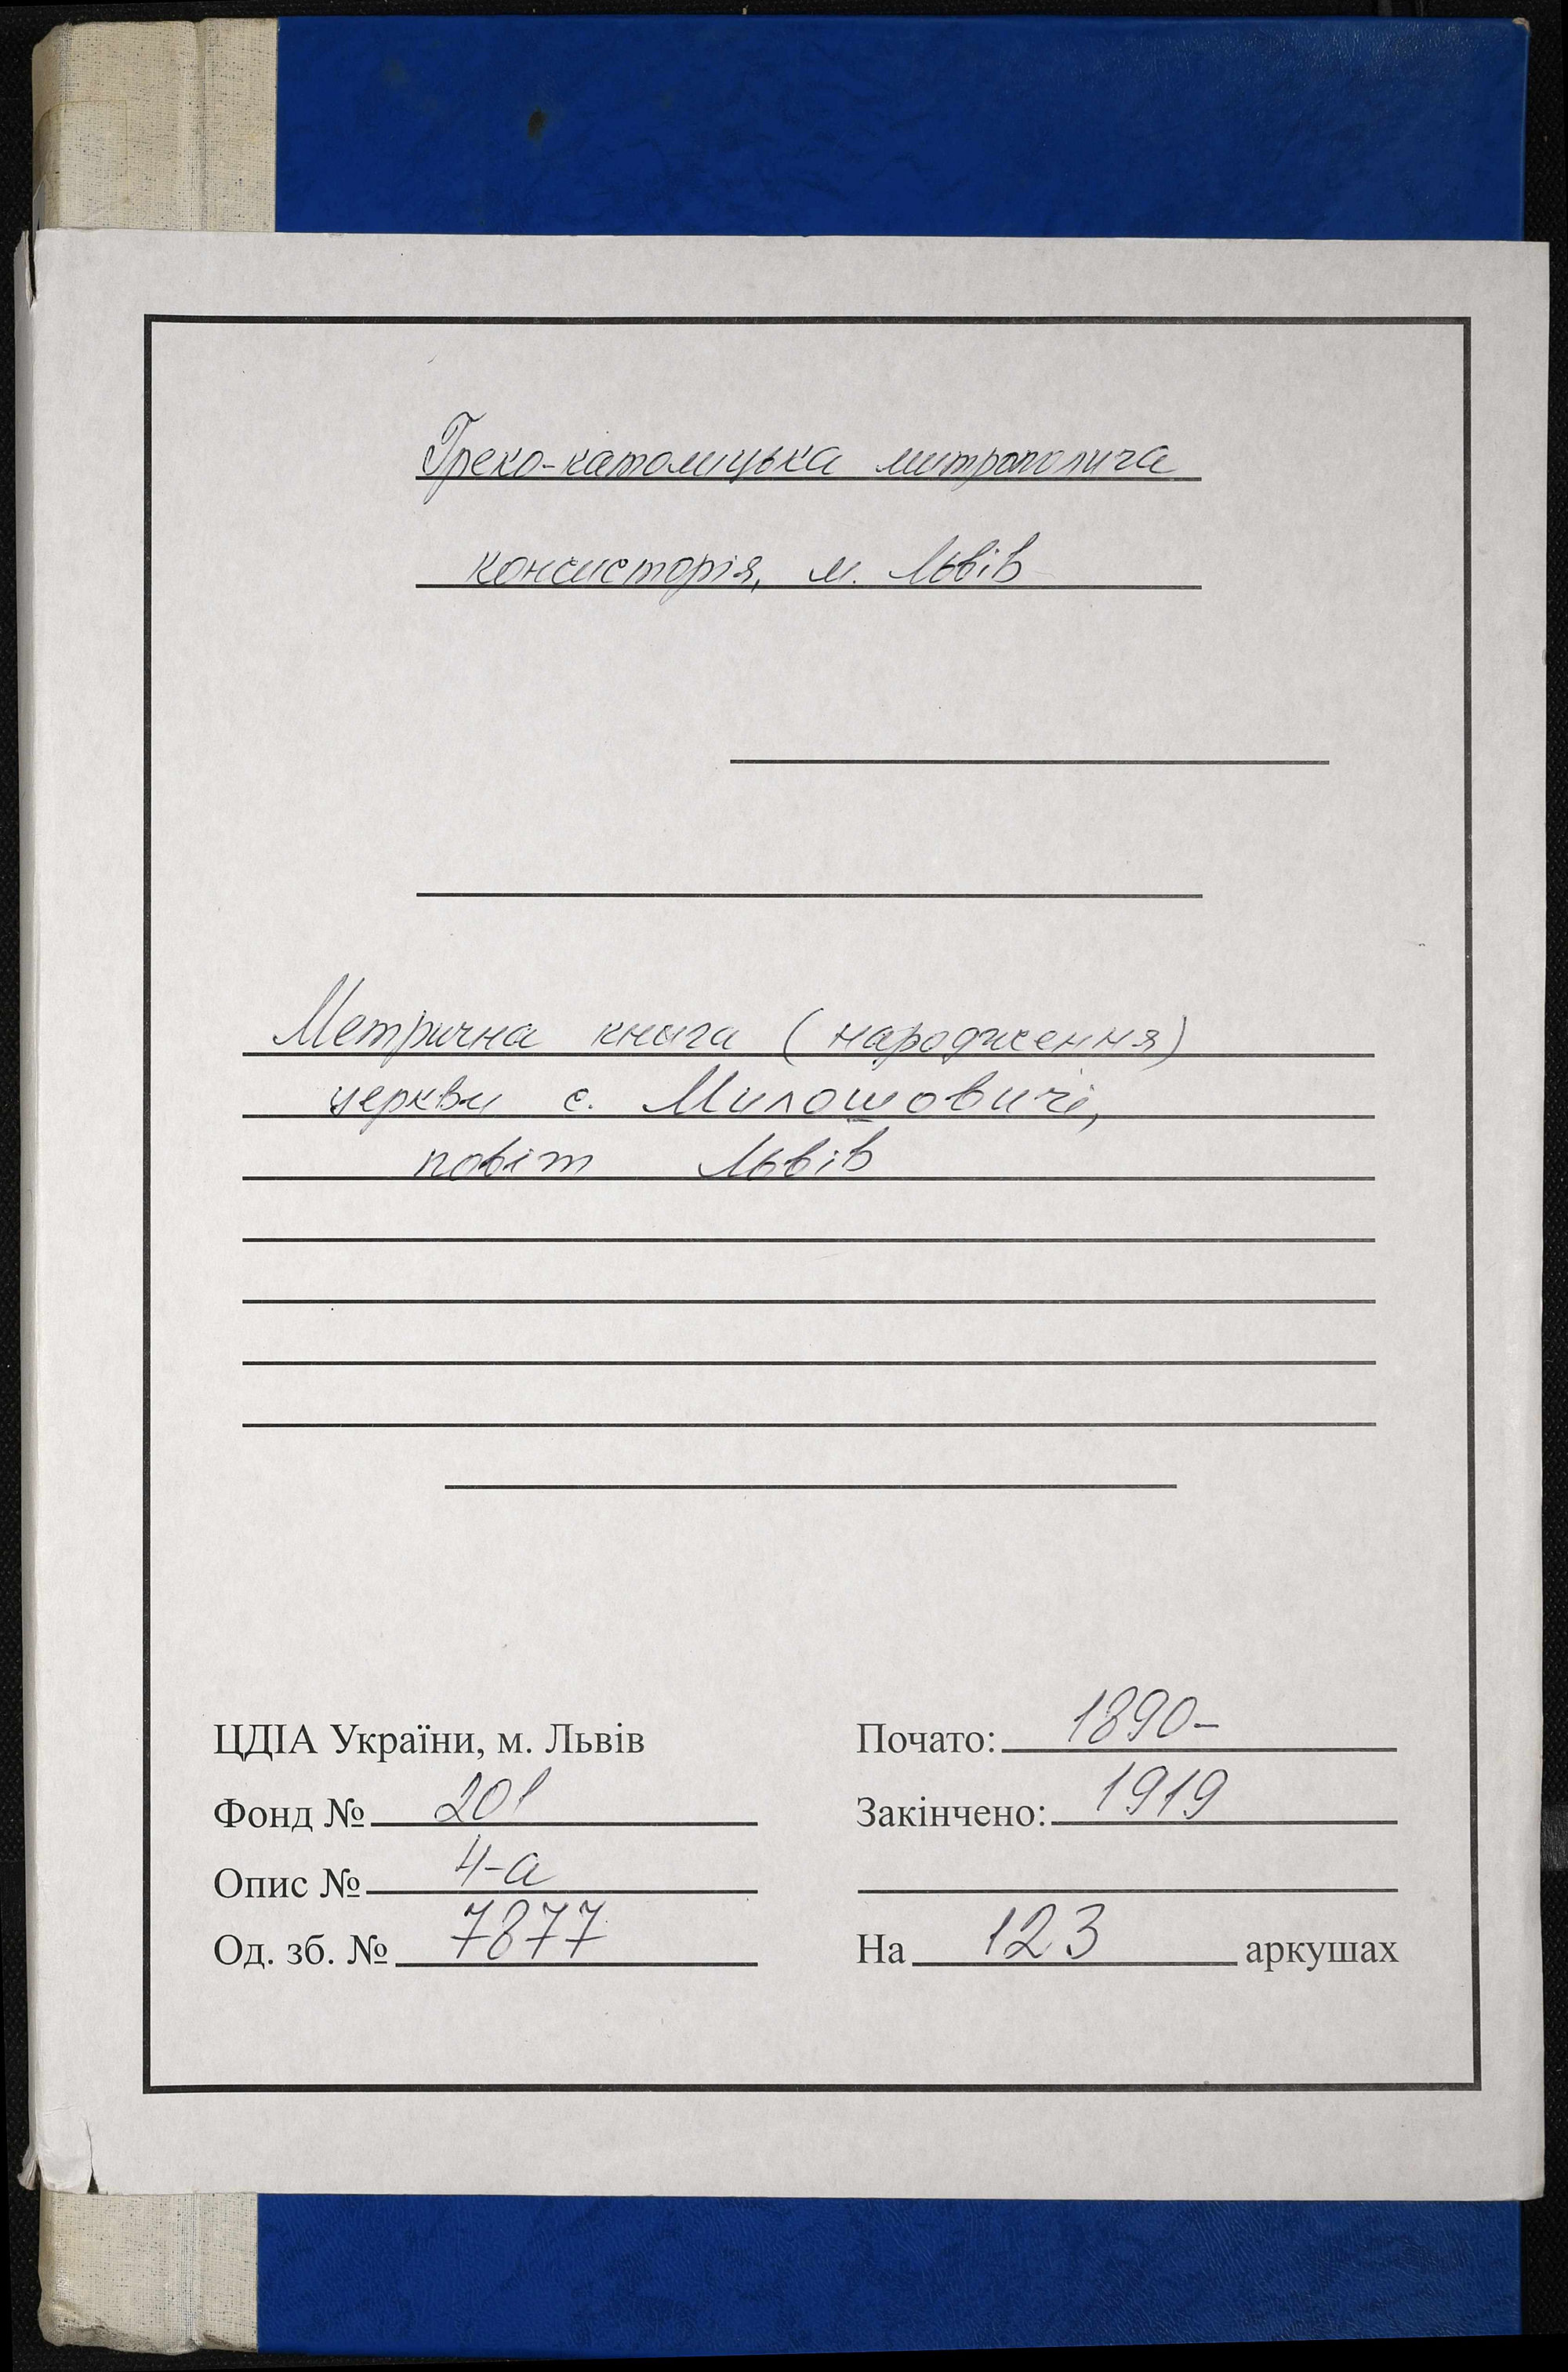 Греко-католицька митрополича
консисторія, м. Львів
Метрична книга (народження)
церкви с. Милошовичі,
повіт Львів
ЦДІА України, м. Львів
Фонд № 201
Опис № 4-а
Од. зб. № 7877
Почато: 1890-
Закінчено: 1919
На 123 аркушах